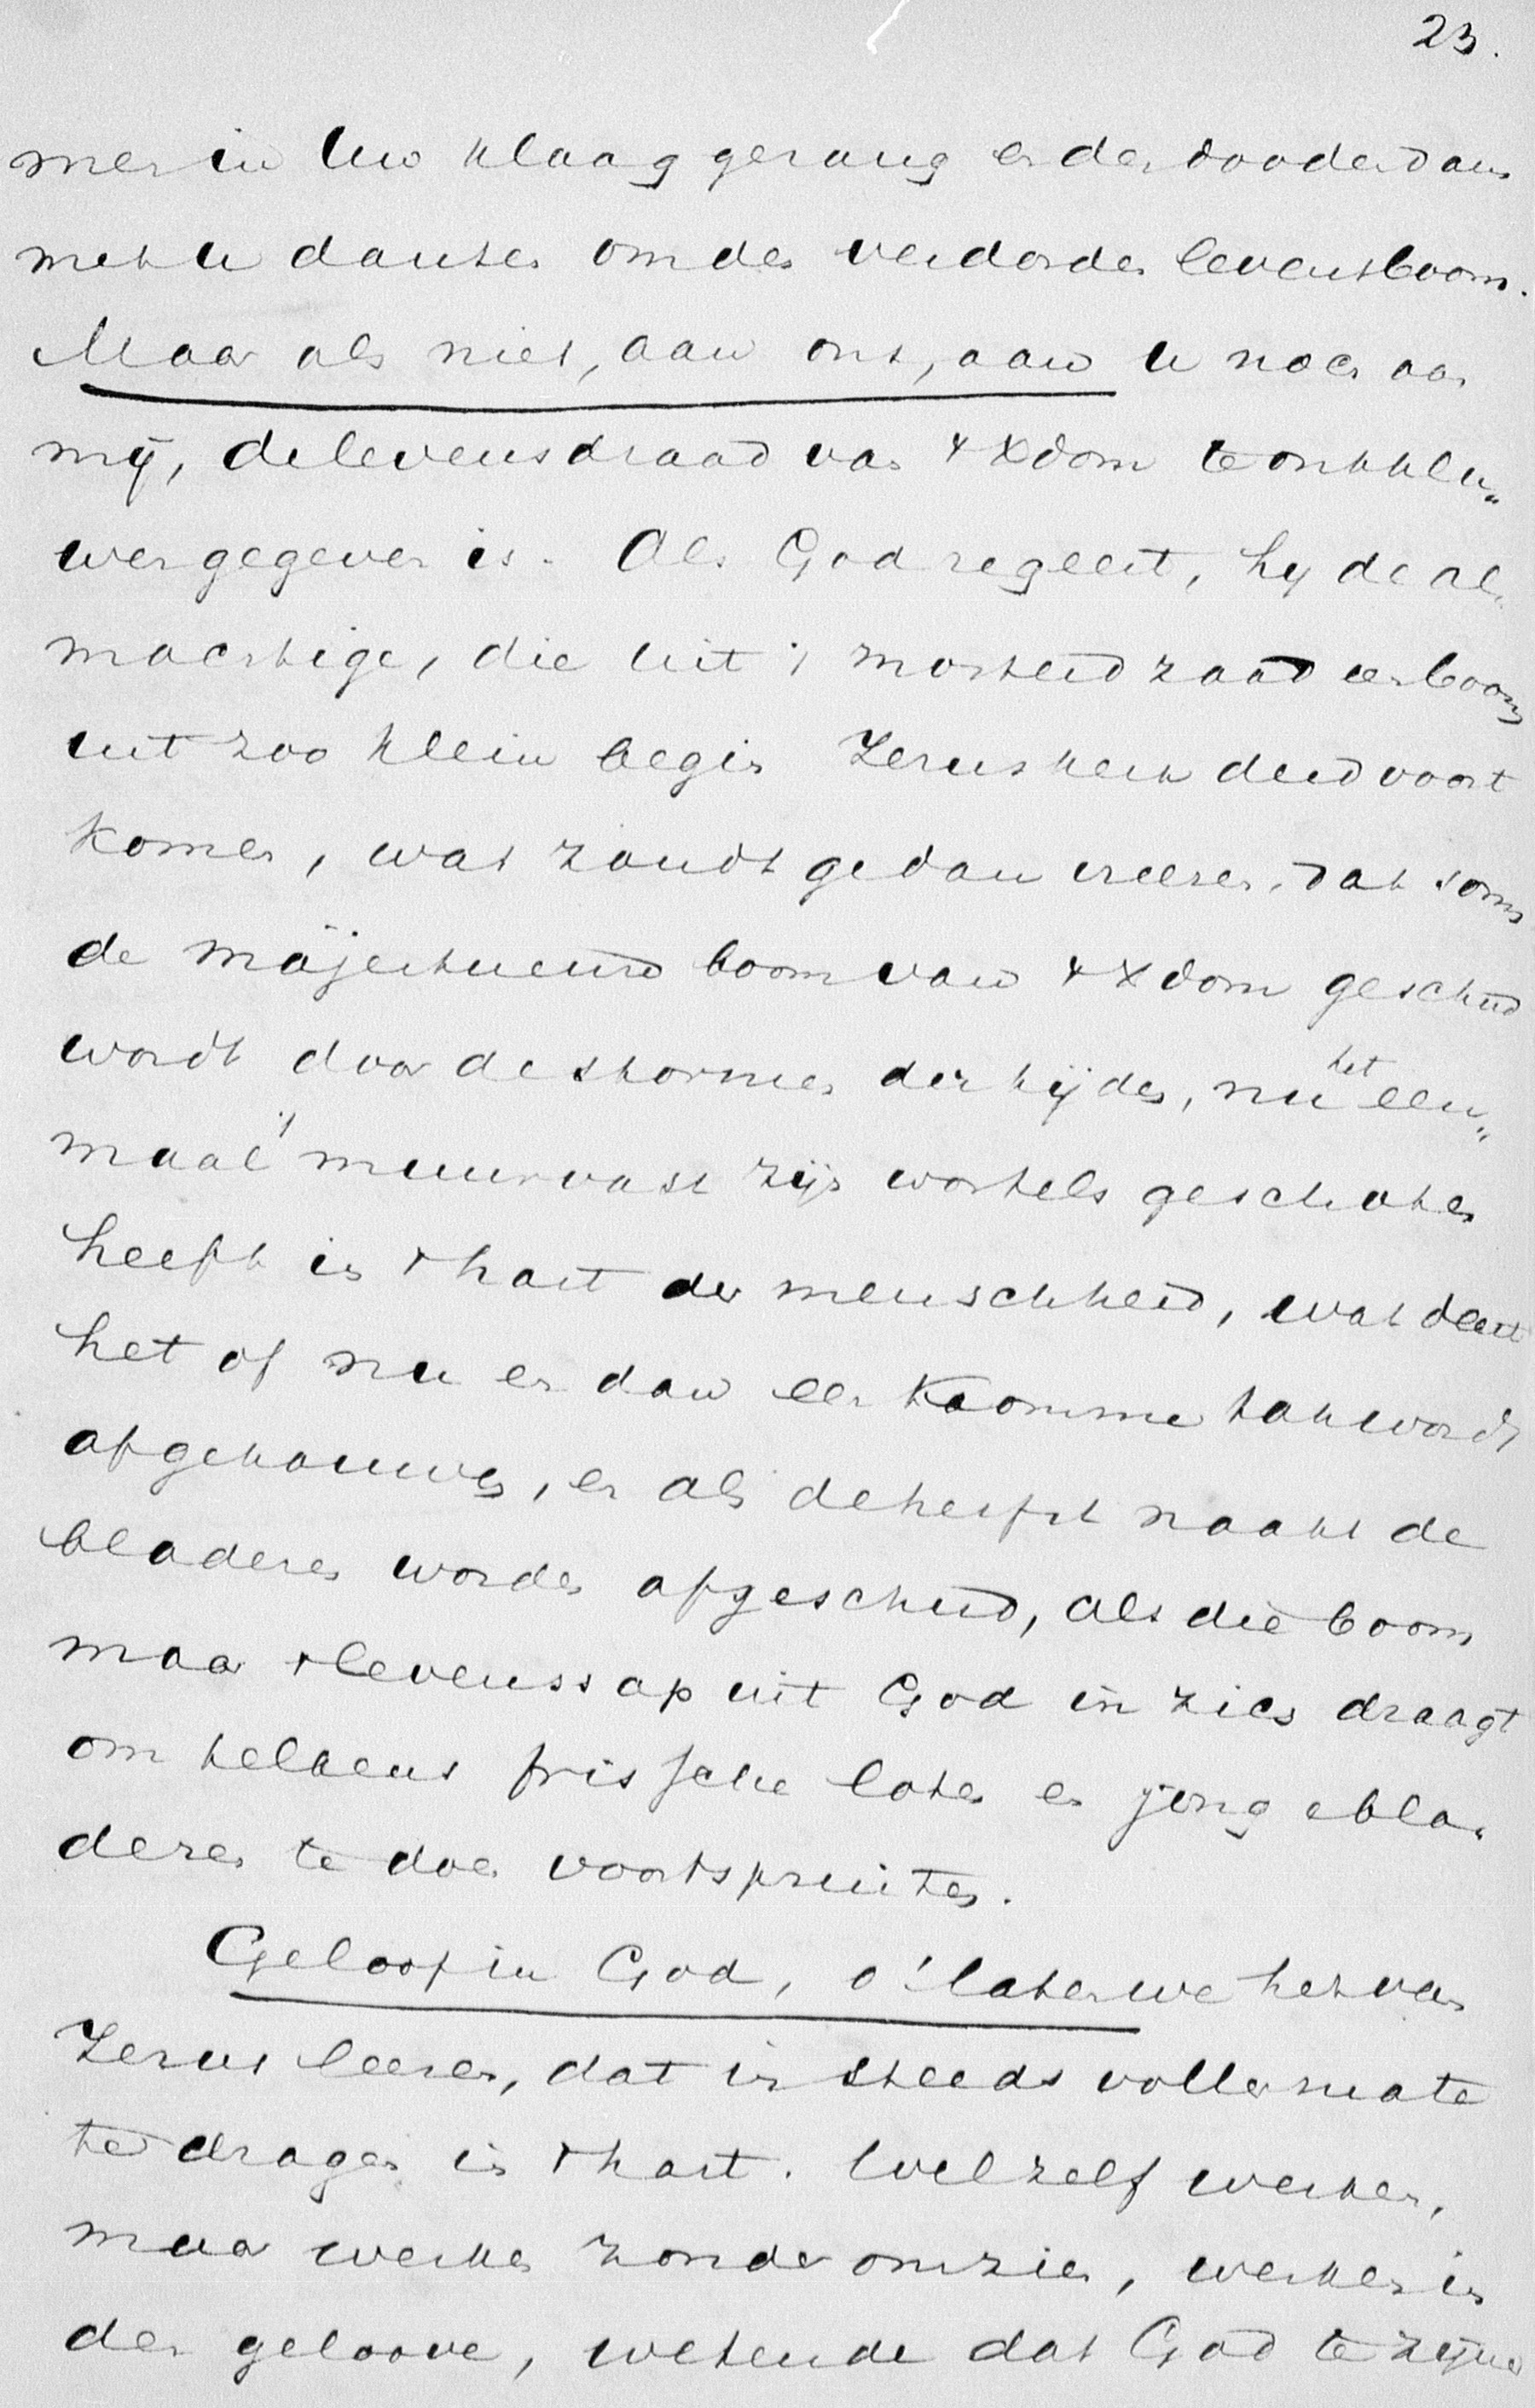 23.
men in Uw klaaggezang en den doodendans
met U dansen om den verdorden levensboom.
Maar als niet, aan ons, aan U noch aan
mij, de levensdraad van 't Xdom te ontklu„
wen gegeven is. Als God regeert, hij de al„
machtige, die uit 't mosterdzaad een boom,
uit zoo klein begin Jezus kerk deed voort
komen, wat zoudt ge dan vreezen, dat soms
de majestueuse boom van 't Xdom geschud
wordt door de stormen der tijden, nu het een„
maal muurvast zijn wortels geschoten
heeft in 't hart der menschheid, wat deert
het of nu en dan een kromme tak wordt
afgehouwen, en als de herfst naakt de
bladeren worden afgeschud, als die boom
maar 't levenssap uit God in zich draagt
om telkens frissche loten en jonge bla„
deren te doen voortspruiten.
Geloof in God, o! laten we het van
Jezus leeren, dat in steeds voller mate
te dragen in 't hart. Wel zelf werken,
maar werken zonder omzien, werken in
den geloove, wetende dat God te zijner